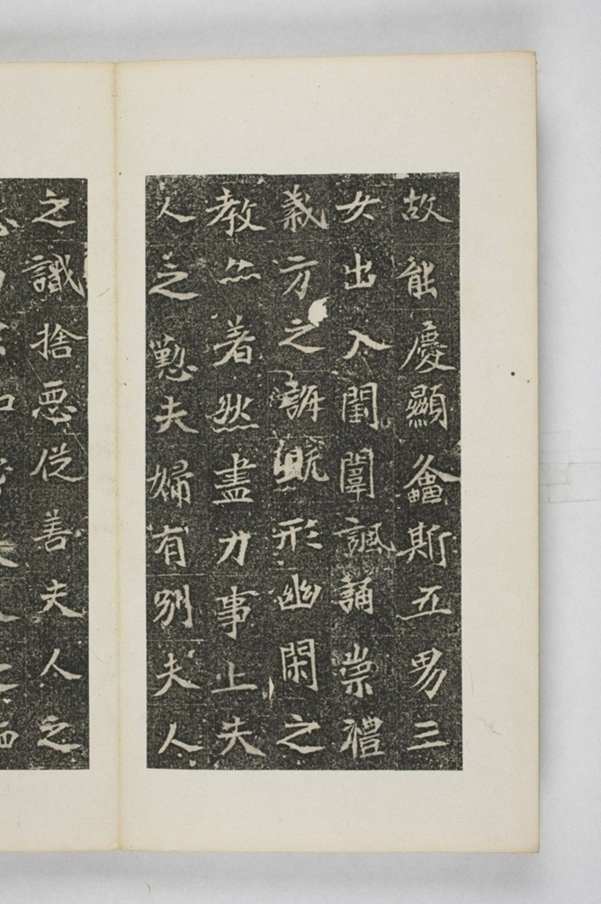 故能慶顯螽斯五男三
女出入閨闈諷誦崇禮
義方之誨既形幽閑之
教亦著然盡力事上夫
人之懃夫婦有別夫人
之識捨惡從善夫人之